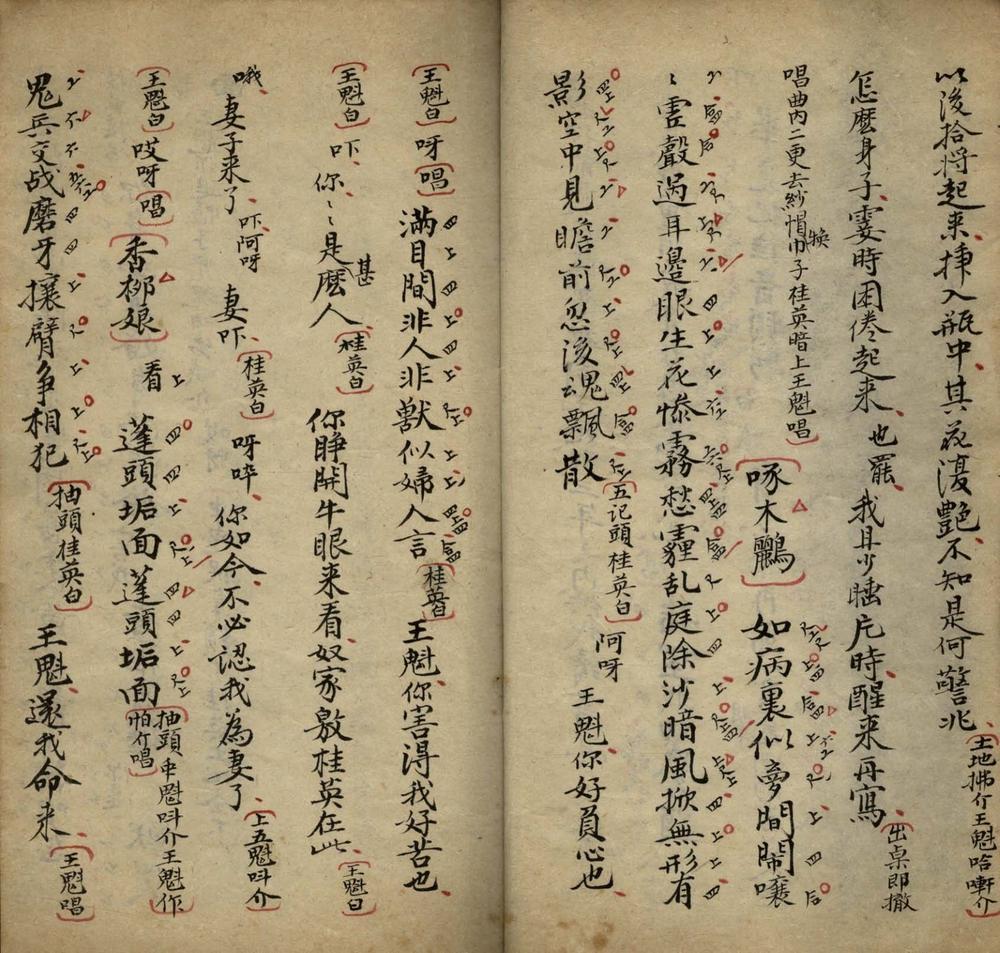 以後拾將起來揷入瓶中其花復艷不知是何警兆(土地拂介王魁哈軒介)
怎麽身子霎時困倦起來也罷我且少睡片時醒來再寫 出桌即撤
唱曲內二更去紗帽換巾子桂英暗上王魁唱)
(啄木鸝)如病裏似夢間鬧嚷
〻雲聲過耳邊眼生花慘霧愁霾乱庭除沙暗風掀無形有
影空中見瞻前忽後魂飄散(五記頭桂英白)阿呀王魁你好負心也
(王魁白)呀(唱)滿目間非人非獸似婦人言(桂英白)王魁你害得我好苦也
(王魁白)吓你〻是甚麽人(桂英白)你睜開牛眼来看奴家敫桂英在此(王魁白)
哦妻子来了吓阿呀妻吓(桂英白)呀啐你如今不必認我為妻了(上五魁呌介
(王魁白)哎呀(唱)(香柳娘)看蓬頭垢面蓬頭垢面(抽頭 魁呌介王魁作怕介唱)
鬼兵交战磨牙攘臂争相犯(抽頭桂英白)王魁還我命来(王魁唱)